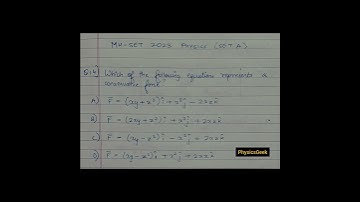 MH-SET 2023 Physics (SET A)
Q.14) Which of the following equations represents a
conservative force
A) F̄ = (2xy + z²)î + x²ĵ - 2xzk̂
B) F̄ = (2xy + z²)î + x²ĵ + 2xzk̂
C) F̄ = (xy - z²)î - x²ĵ + 2xzk̂
D) F̄ = (xy - z²)î + x²ĵ + 2xzk̂
PhysicsGeek